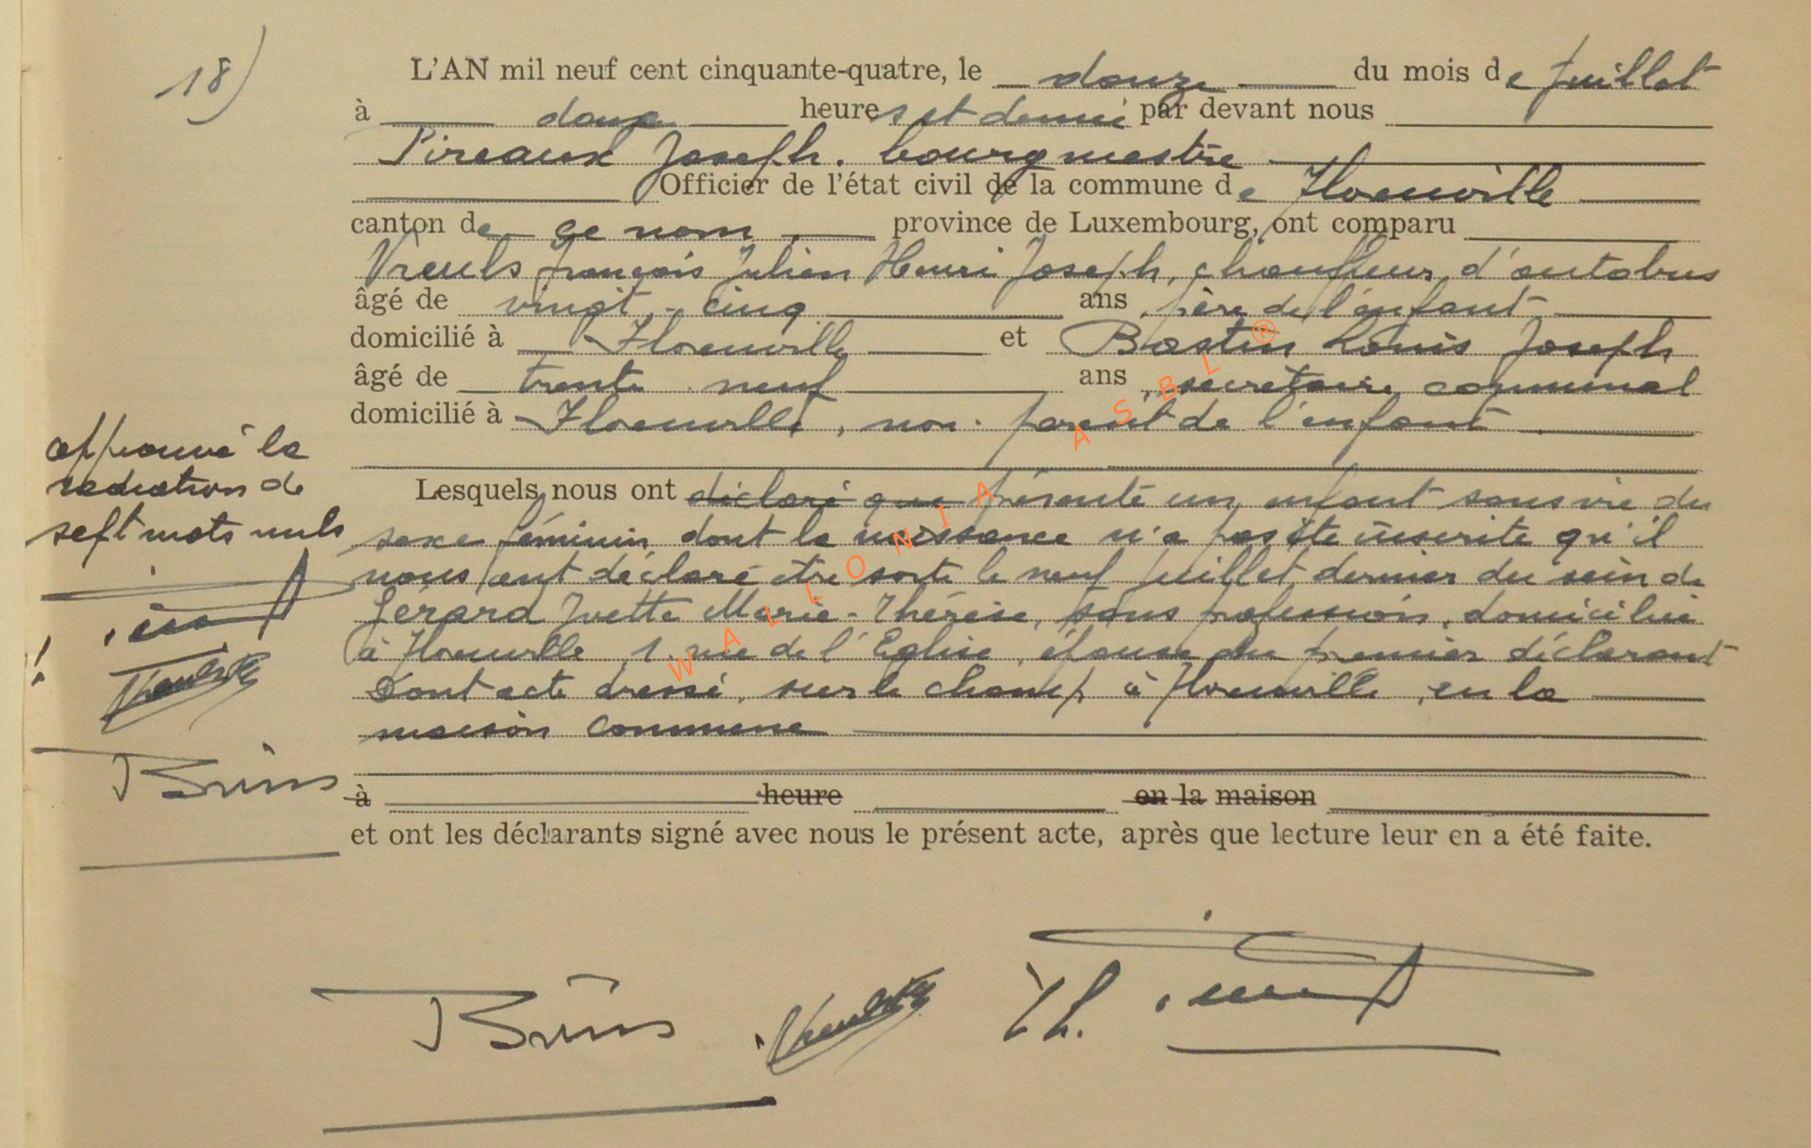 18)
L'AN mil neuf cent cinquante-quatre, le douze du mois de juillet
à douze heures et demie par devant nous
Pireaux Joseph. bourgmestre
Officier de l'état civil de la commune de Florenville
canton de ce nom, province de Luxembourg, ont comparu
Vreuls françois Julien Henri Joseph, chauffeur d'autobus
âgé de vingt-cinq ans, père de l'enfant
domicilié à Florenville et Bastin Louis Joseph
âgé de trente neuf ans, secrétaire communal
domicilié à Florenville, non parent de l'enfant
Lesquels nous ont déclaré que présenté un enfant sans vie du
sexe féminin dont la naissance n'a pas été inscrite qu'il
nous ont déclaré être sorti le neuf juillet dernier du sein de
Gérard Yvette Marie-Thérèse, sans profession, domiciliée
à Florenville, 1 rue de l'Eglise, épouse du premier déclarant
Dont acte dressé, sur le champ, à Florenville, en la
maison commune
à heure en la maison
et ont les déclarants signé avec nous le présent acte, après que lecture leur en a été faite.
approuvé la
radiation de
sept mots nuls
WALLONIA ASBL ®